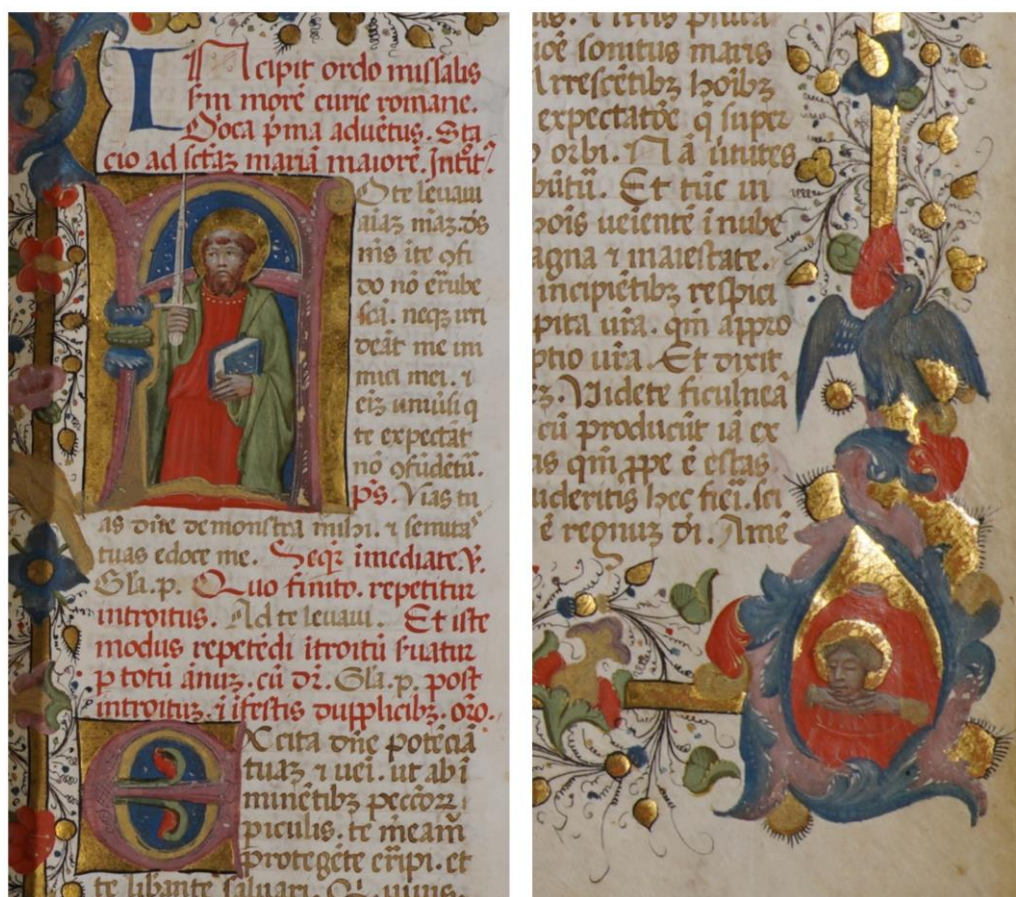 INcipit ordo missalis
s̄m morē curie romane.
Dōca p̄ma aduētus. Sta
cio ad sctāz mariā maiorē. Intōit᷒
A
D te leuaui
aīaz māz. ds̄
m̄s ī te ꝯfi
do nō ērube
scā. neqz irri
deāt me ini
mici mei. ⁊
ēiz uniūsi q
te expectāt
nō ꝯfūdētū.
p̄s. Vias tu
as dn̄e demonstra michi. ⁊ semitas
tuas edoce me. Seqr̄ īmediate. ℣.
Gl̄a. p. Quo finito. repetitur
introitus. Ad te leuaui. Et iste
modus repetēdi ītroitū s̄uatur
p totū ānuz. cū dr̄. Gl̄a. p. post
introituz. ⁊ ī festis dupplicibz. or̄o.
EXcita dn̄e potēciā
tuaz ⁊ ueī. ut ab ī
minētibz pecc̄oꝝ
p̄iculis. te m̄eam̄
protegēte ēripi. et
te libante saluari. Q̇. uiuis.
us. ⁊ istis plura
iōē sonitus maris
Arrescētibz hoībz
expectatōē q̄ super
orbi. Nā ūtutes
būtū. Et tūc ui
hoīs ueientē ī nube
agna ⁊ maiestate.
incipiētibz respici
pita ur̄a. qm̄ appro
ptio ur̄a. Et dixit
z. Videte ficulneā
cū producūt iā ex
as qm̄ ꝓpe ē estas.
uideritis hec fieī. sci
ē regnuz dī. Amē